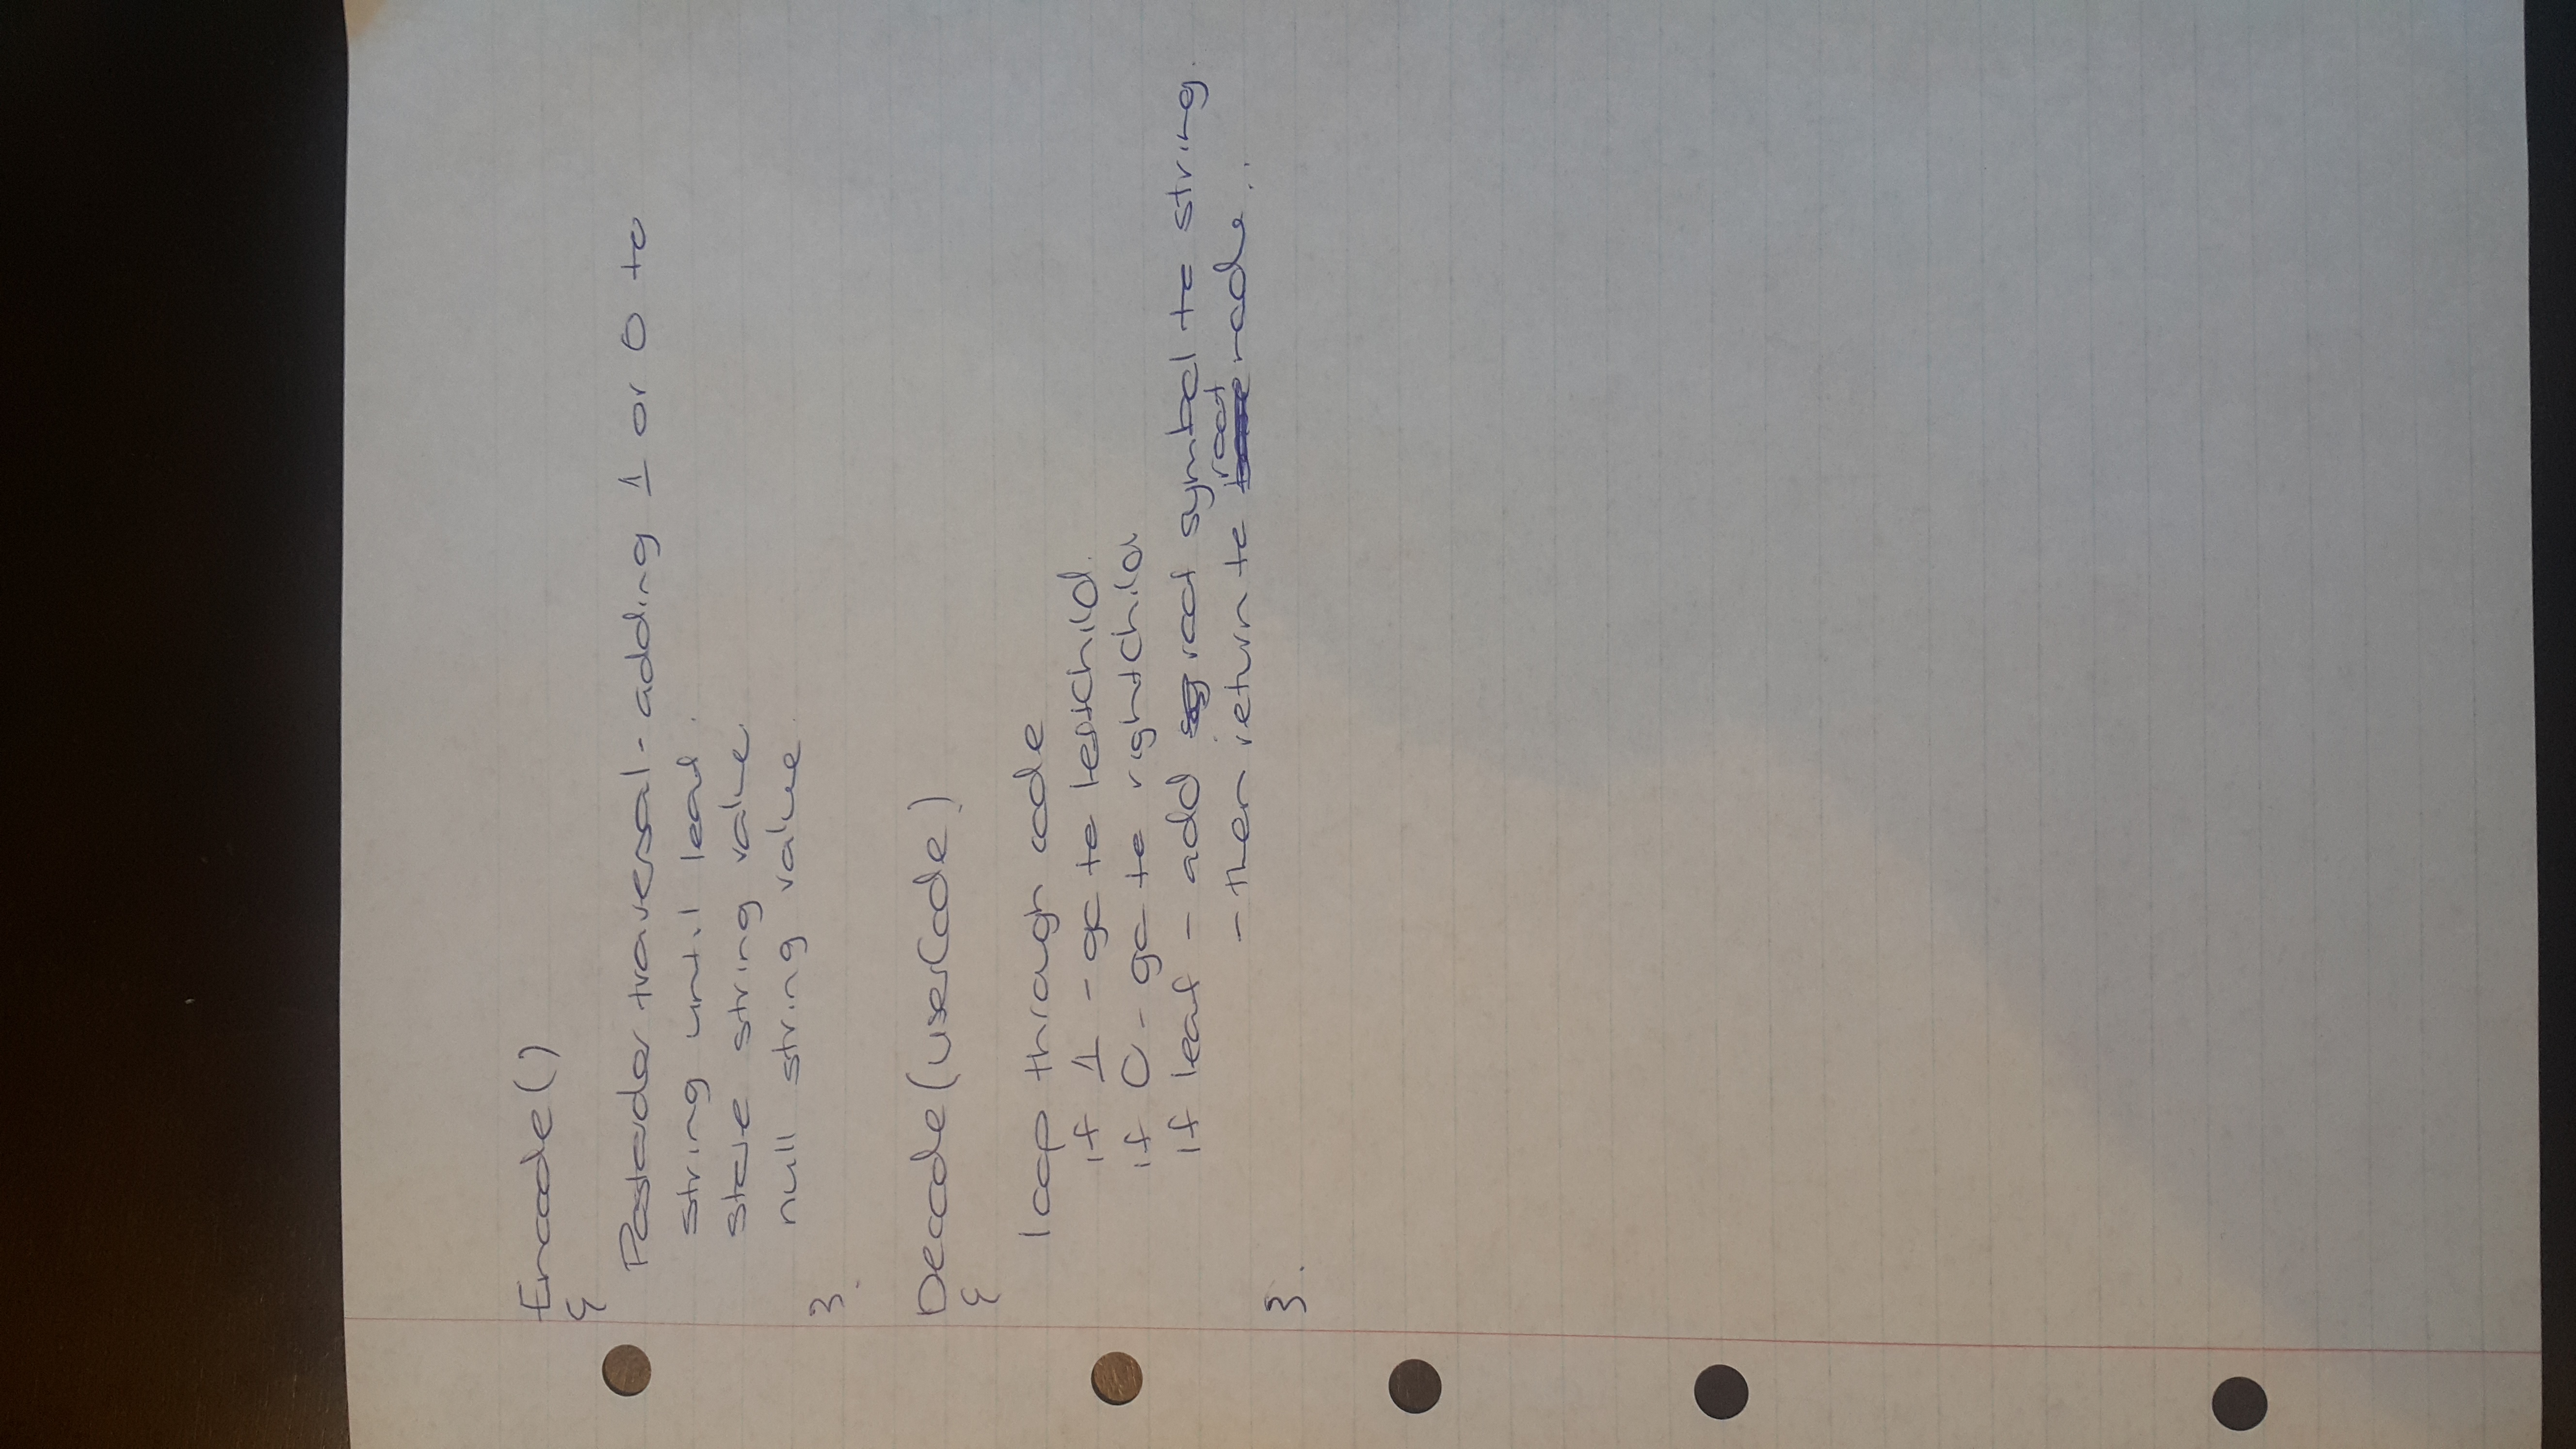 Encode()
{
Postorder traversal - adding 1 or 0 to
string until leaf.
store string value
null string value.
}
Decode(userCode)
{
loop through code
if 1 - go to leftChild.
if 0 - go to rightChild
if leaf - add root symbol to string.
- then return to root node..
}.